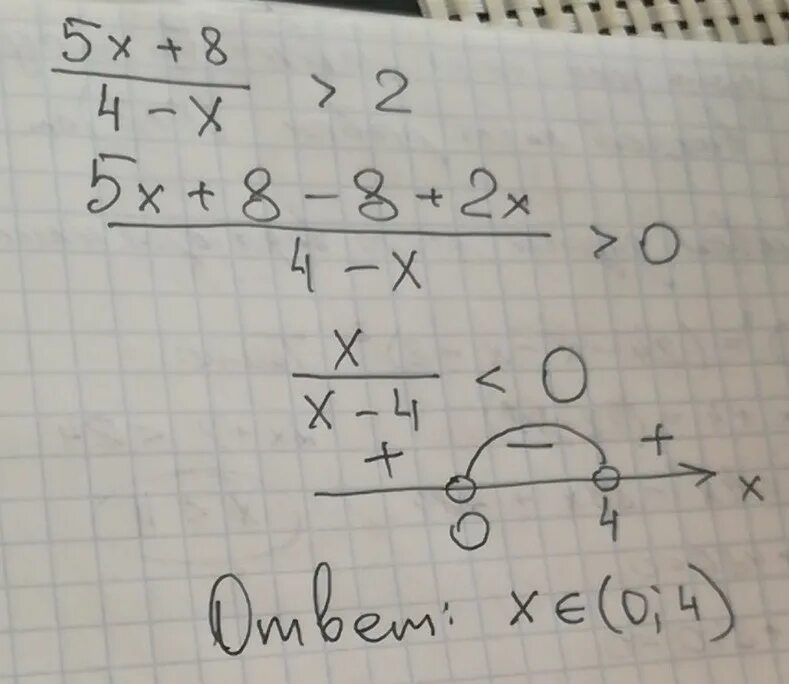 5x + 8
4 - x
> 2
5x + 8 - 8 + 2x
4 - x
> 0
x
x - 4
< 0
+ - +
0 4 x
Ответ: x ∈ (0; 4)